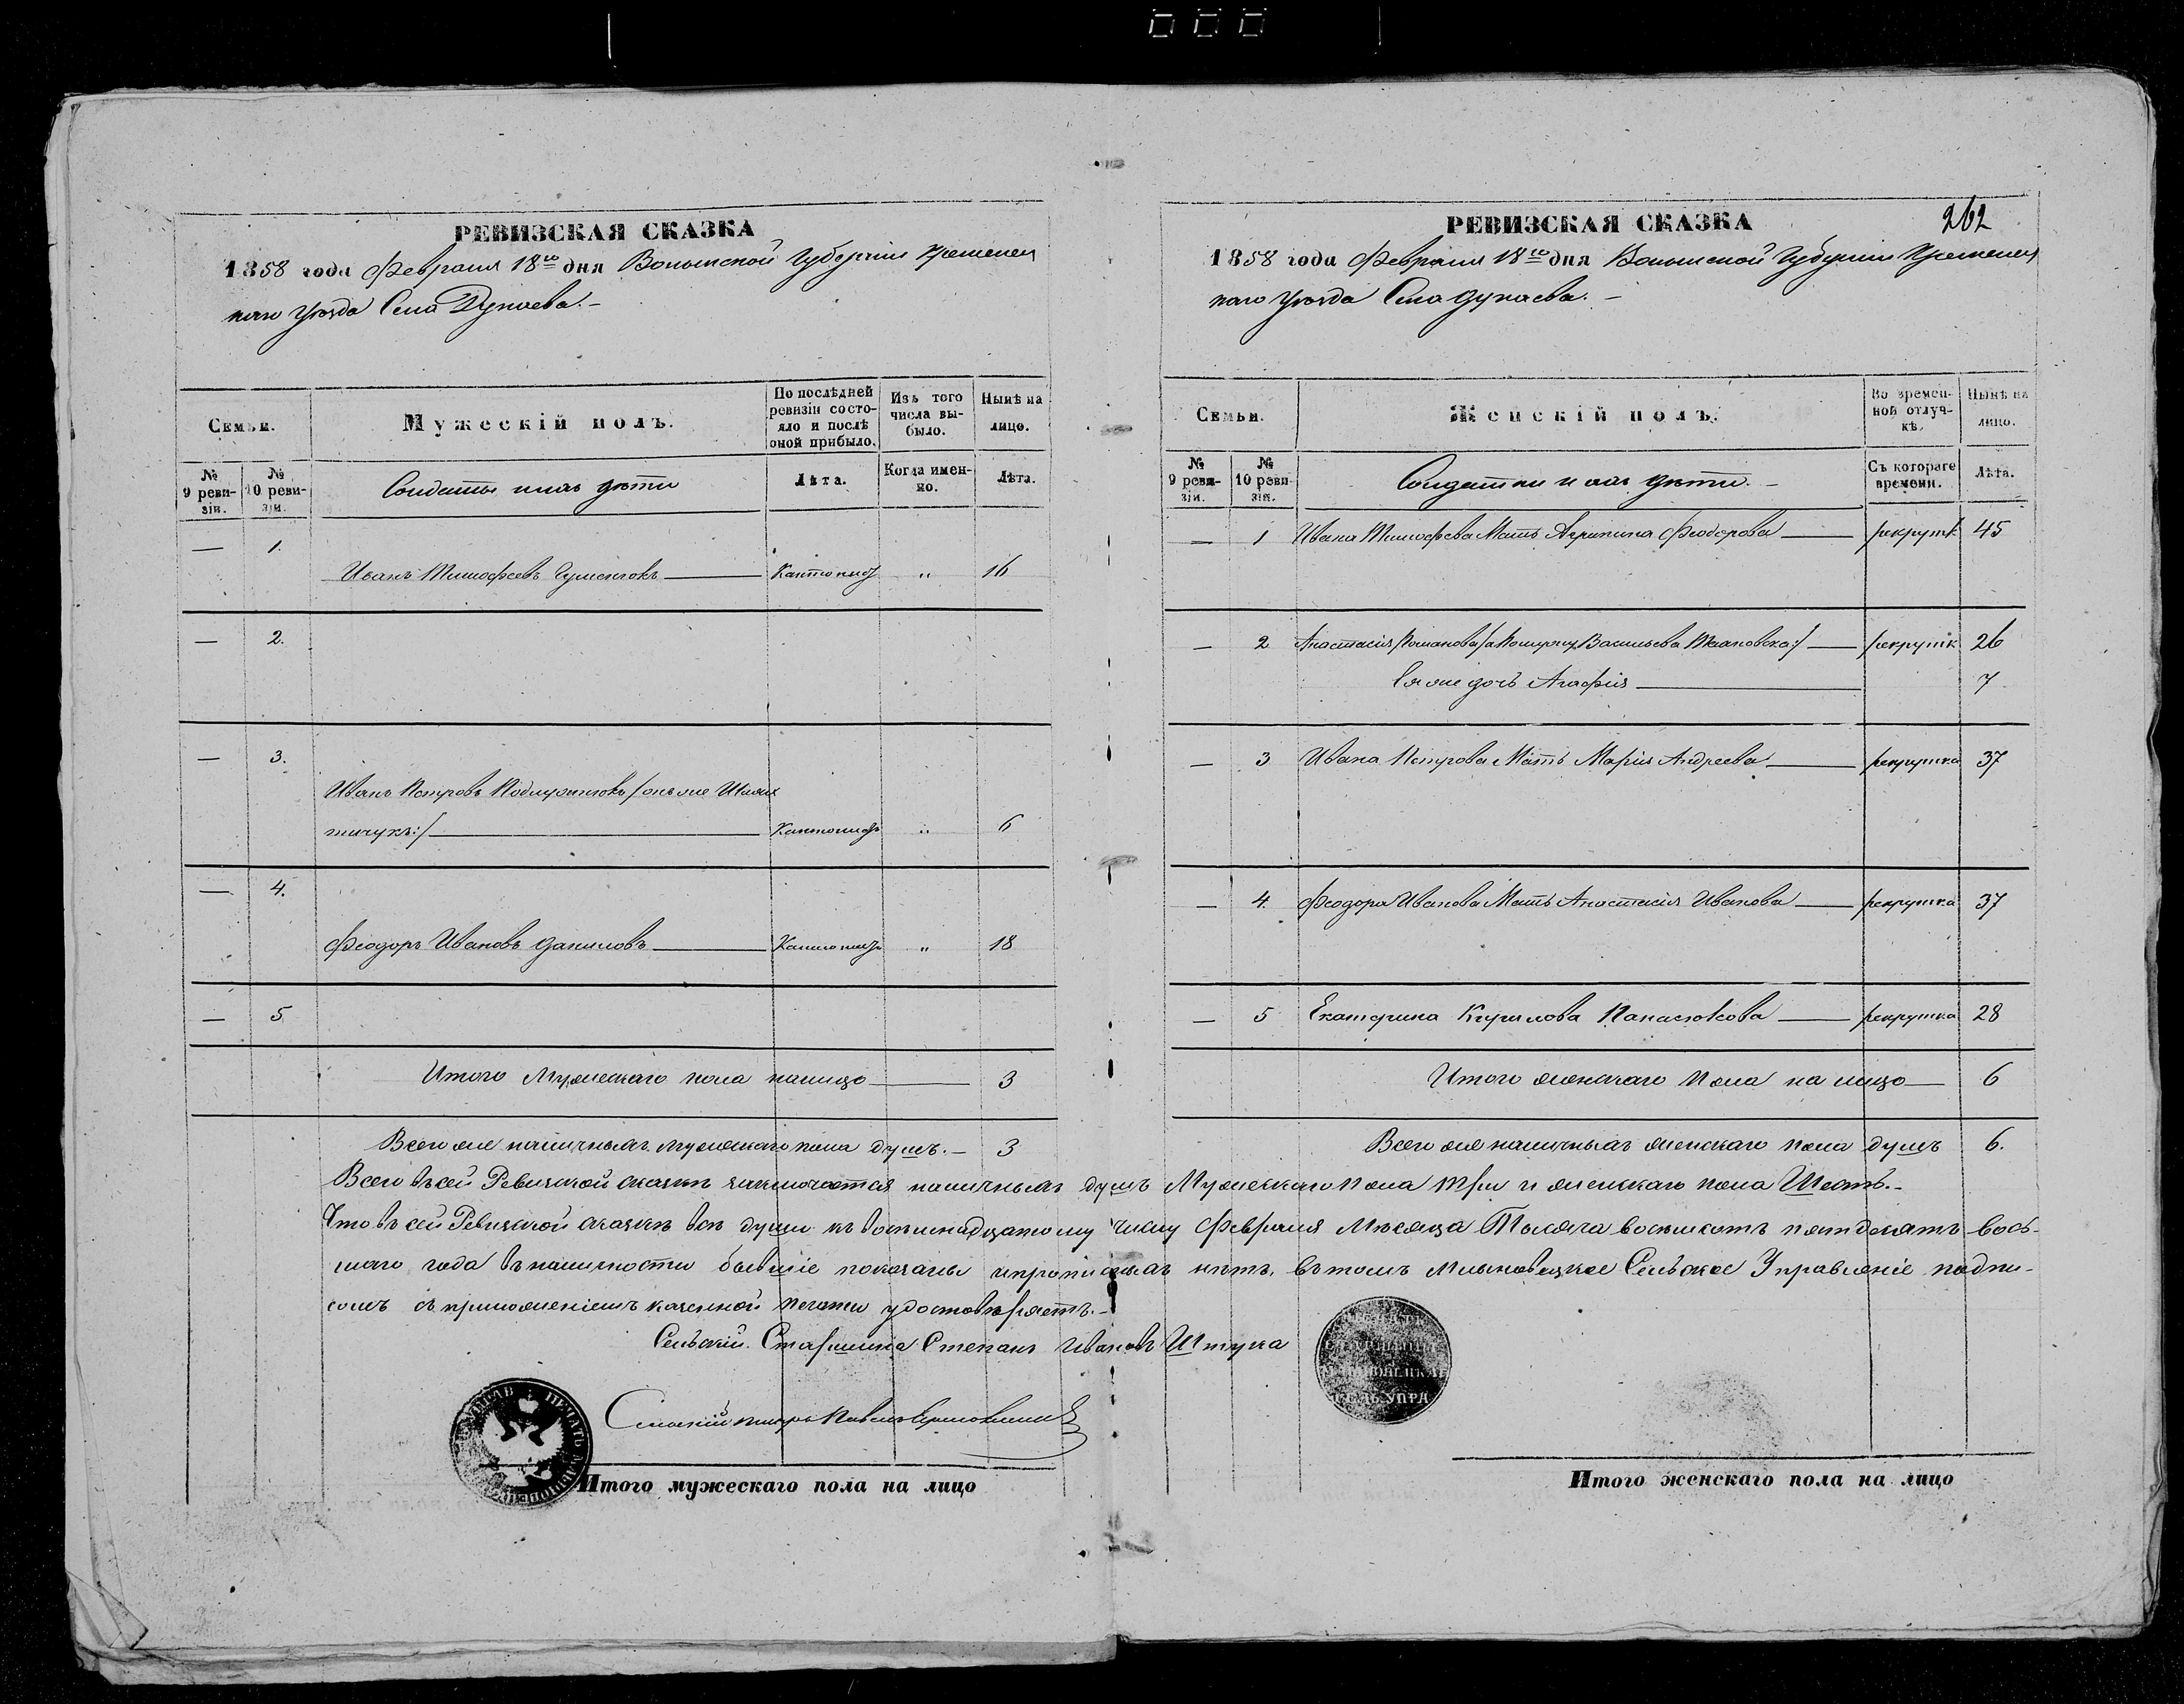 РЕВИЗСКАЯ СКАЗКА
1858 года Февраля 18го дня Волынской Губернии Кременец
каго Уезда Села Дунаева.–
Семьи.
Мужескій полъ.
По послѣдней ревизіи состояло и послѣ оной прибыло.
Изъ того числа выбыло.
Нынѣ на лицо.
№ 9 ревизіи.
№ 10 ревизіи.
Солдаты и ихъ дѣти
Лѣта.
Когда именно.
Лѣта.
— 1.
Иванъ Тимофеевъ — Кантонистъ " 16
— 2.
— 3.
Иванъ Петровъ /онъ же Шлях
тичукъ:/ — Кантонистъ " 6
— 4.
Феодоръ Ивановъ Даниловъ — Кантонистъ " 18
— 5
Итого Мужескаго пола налицо — 3
Всего же наличныхъ мужескаго пола душъ.– 3
РЕВИЗСКАЯ СКАЗКА
262
1858 года Февраля 18го дня Волынской Губернии Кременец
каго Уезда Села Дунаева.–
Семьи.
Женскій полъ.
Во временной отлучкѣ.
Нынѣ на лицо.
№ 9 ревизіи.
№ 10 ревизіи.
Солдатки и ихъ дѣти.–
Съ котораго времени.
Лѣта.
— 1 Ивана Тимофеева Мать Агрипина Феодорова — рекрутк 45
— 2 Анастасія Романова /а Васильева — рекрутк 26
Ея же дочь Агафія — 7
— 3 Ивана Петрова Мать Марія Андреева — рекрутка 37
— 4. Феодора Иванова Мать Анастасія Иванова — рекрутка 37
— 5 Екатерина Кирилова Панасюкова — рекрутка 28
Итого женскаго Пола на лицо — 6
Всего же наличныхъ женскаго пола душъ 6.
Всего въ сей Ревизской сказкѣ заключается наличныхъ душъ Мужескаго пола три и женскаго пола Шесть.–
Что въ сей Ревизской сказкѣ всѣ души къ восьмнадцатому числу Февраля Мѣсяца Тысяча восьмсотъ пятдесятъ вось-
маго года въ наличности бывшіе показаны и прописныхъ нѣтъ, въ томъ Млыновецкое Сельское Управленіе подпи-
сомъ съ приложеніемъ казенной печати удостовѣряетъ.–
Сельскій Старшина Степанъ Ивановъ Штука
Сельскій писарь Павелъ
СЕЛЬ. УПРА
Итого мужескаго пола на лицо
Итого женскаго пола на лицо